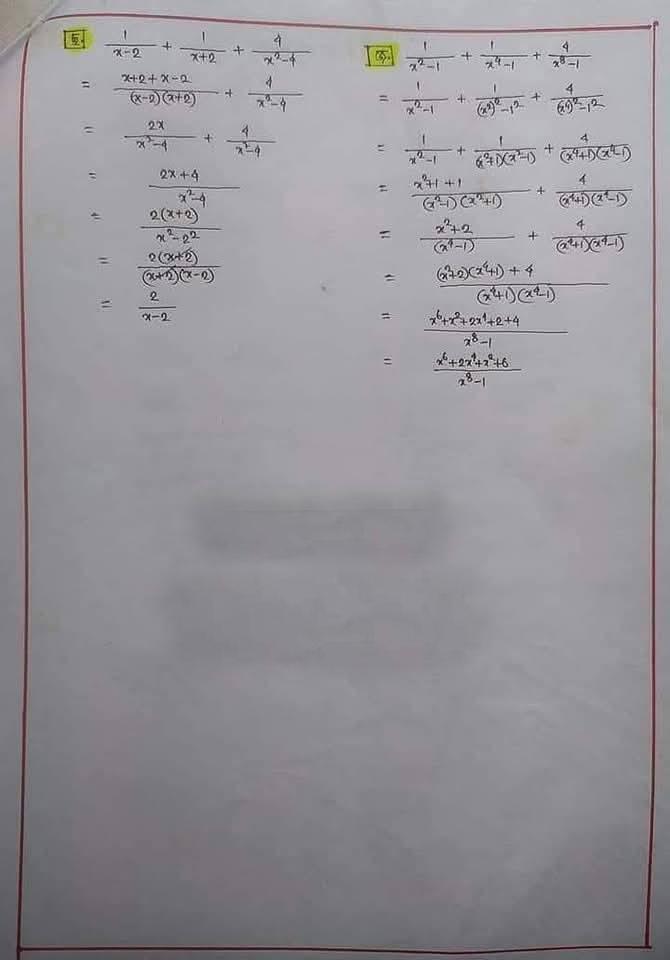 ঙ. 1/(x-2) + 1/(x+2) + 4/(x²-4)
= (x+2+x-2)/((x-2)(x+2)) + 4/(x²-4)
= 2x/(x²-4) + 4/(x²-4)
= (2x+4)/(x²-4)
= 2(x+2)/(x²-2²)
= 2(x+2)/((x+2)(x-2))
= 2/(x-2)
1/(x²-1) + 1/(x⁴-1) + 4/(x⁸-1)
= 1/(x²-1) + 1/((x²)²-1²) + 4/((x⁴)²-1²)
= 1/(x²-1) + 1/((x²+1)(x²-1)) + 4/((x⁴+1)(x⁴-1))
= (x²+1+1)/((x²-1)(x²+1)) + 4/((x⁴+1)(x⁴-1))
= (x²+2)/(x⁴-1) + 4/((x⁴+1)(x⁴-1))
= ((x²+2)(x⁴+1)+4)/((x⁴+1)(x⁴-1))
= (x⁶+x²+2x⁴+2+4)/(x⁸-1)
= (x⁶+2x⁴+x²+6)/(x⁸-1)